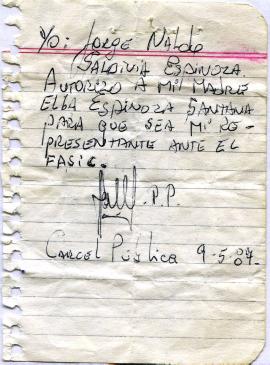 Yo: Jorge Naldo
Saldivia Espinoza.
Autorizo a mi madre
Elba Espinoza Santana
para que sea mi re-
presentante ante el
FASIC.
P.P.
Carcel Pública 9-5-87.